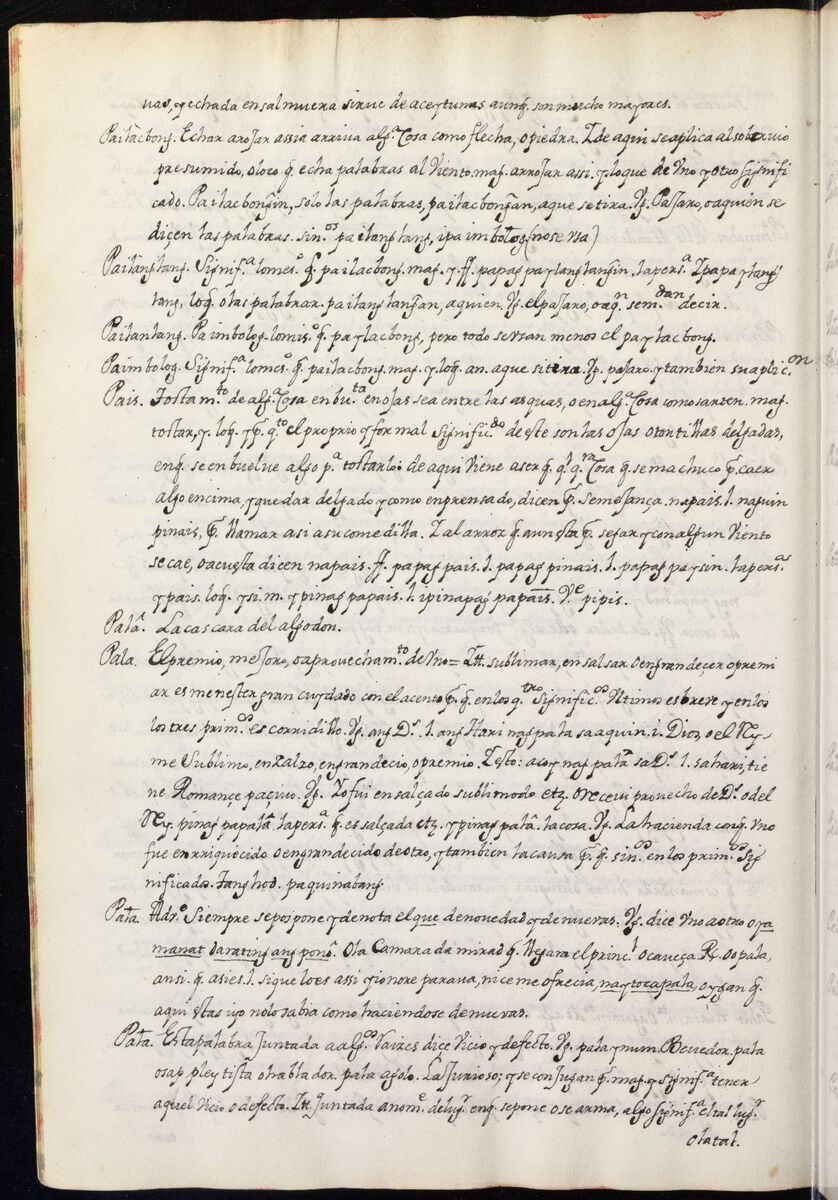 uas, y echada en salmuera sirue de aceytunas aunq̃. son mucho mayores.
Paitacbong. Echar arojar assia arriva alg.ª Cosa como flecha, o piedra. I de aqui se aplica al sobervio
presumido, o loco q̃. echa palabras al Viento. mag. arrojar assi. y lo que de Vno y otro signifi
cado. Paitacbongin, solo las palabras, paitacbongan, a que se tira. Vg. Paxaro, o a quien se
diçen las palabras. sin.os paitangtang, ipaimbolog (no se vsa)
Paitangtang. Signif.ª lomes.º q̃. paitacbong. mag. y ff. papagpaytangtangin. la pers.ª I papaytang
tang, loq̃. o las palabrar. paitangtangan, a quien. Vg. el paxaro, o a q.n sem.dan decir.
Paitantang. Paimbolog. lomis.º q̃. paytacbong, pero todo se vsan menos el paytacbong.
Paimbolog. Signif.ª lomes.º q̃. paitacbong. mag. y loq̃. an. a que si tira. Vg. paxaro. y tambien su aplic.on
Pais. Tostam.to de alg.ª Cosa enbu.ta en ojas sea entre las asquas, o en alg.ª Cosa como sarten. mag.
tostar, y. loq̃. y p̃. q.to el proprio y formal Signific.do de este son las ojas o tortillas delgadas,
enq̃. se enbuelue algo p.ª tostarlo: de aqui viene a ser q̃. q.l q.ra Cosa q̃. se machuco p̃. caer
algo encima, y quedar delgado y como enprensado, dicen p̃. semejança. napais. l. naguin
pinais, p̃. llamar asi a su comedilla. I al arroz q̃. aun esta p̃. segar y con algun Viento
se cae, o acuesta dicen napais. ff. papagpais. l. papagpinais. l. papagpaysin. la pers.as
y pais. loq̃. ysi. m. y pinagpapais. l. ipinapagpapais. V.e pipis.
Pala. La cascara del algodon.
Pala. El premio, mejoro, o aprovecham.to de Vno = Itt. sublimar, ensalsar o engrandeçer o premi
ar es menester gran cuydado con el acento p̃. q̃. en los q.tro Signific.os Vltimos es breve y en los
los tres prim.os es corridillo. Vg. ang D.s l. ang Hari nagpala sa aquin, i. Dios, o el Rey-
me Sublimo, enzalzo, engrandecio, o premio. I esto: acoy nagpala sa D.s l. sa hari, tie
ne Romançe paçiuo. Vg. Yo fui ensalçado sublimodo etz. o recevi provecho de D.s o del
Rey. pinagpapala. la pers.ª q̃. es salçada etz. y pinagpala. la cosa. Vg. La hacienda conq̃. Vno
fue enrriquecido o engrandecido de otro, y tambien la causa p̃. q̃. sin.os en los prim.os Sig
nificados. Tanghod. paquinabang.
Pala. Adv.o Siempre se pospone y denota el que de novedad y de nuevas. Vg. dice Vno a otro oya
manat daratingang pono. Ola Camarada mirad q̃. llegara el princ.l o caveça R. oo pala,
ansi. q̃. asies. l. sique lo es assi y ignore parava, nice me ofrecia, naytocapala, oygan q̃.
aqui estas i yo nolo sabia como haciendose de nuevas.
Pala. Esta palabra Juntada a alg.os Vaizes dice Vicio y defecto. Vg. palaynum. Bevedor. pala
osap pleytista o hablador. palaagolo. La Jurioso; y se conjugan p̃. mag. y signif.ª tener
aquel Vicio o defecto. Itt. Juntada a nom.e de lug.r enq̃. se pone o se arma, algo signif.ª el tal lug.r
olatal.